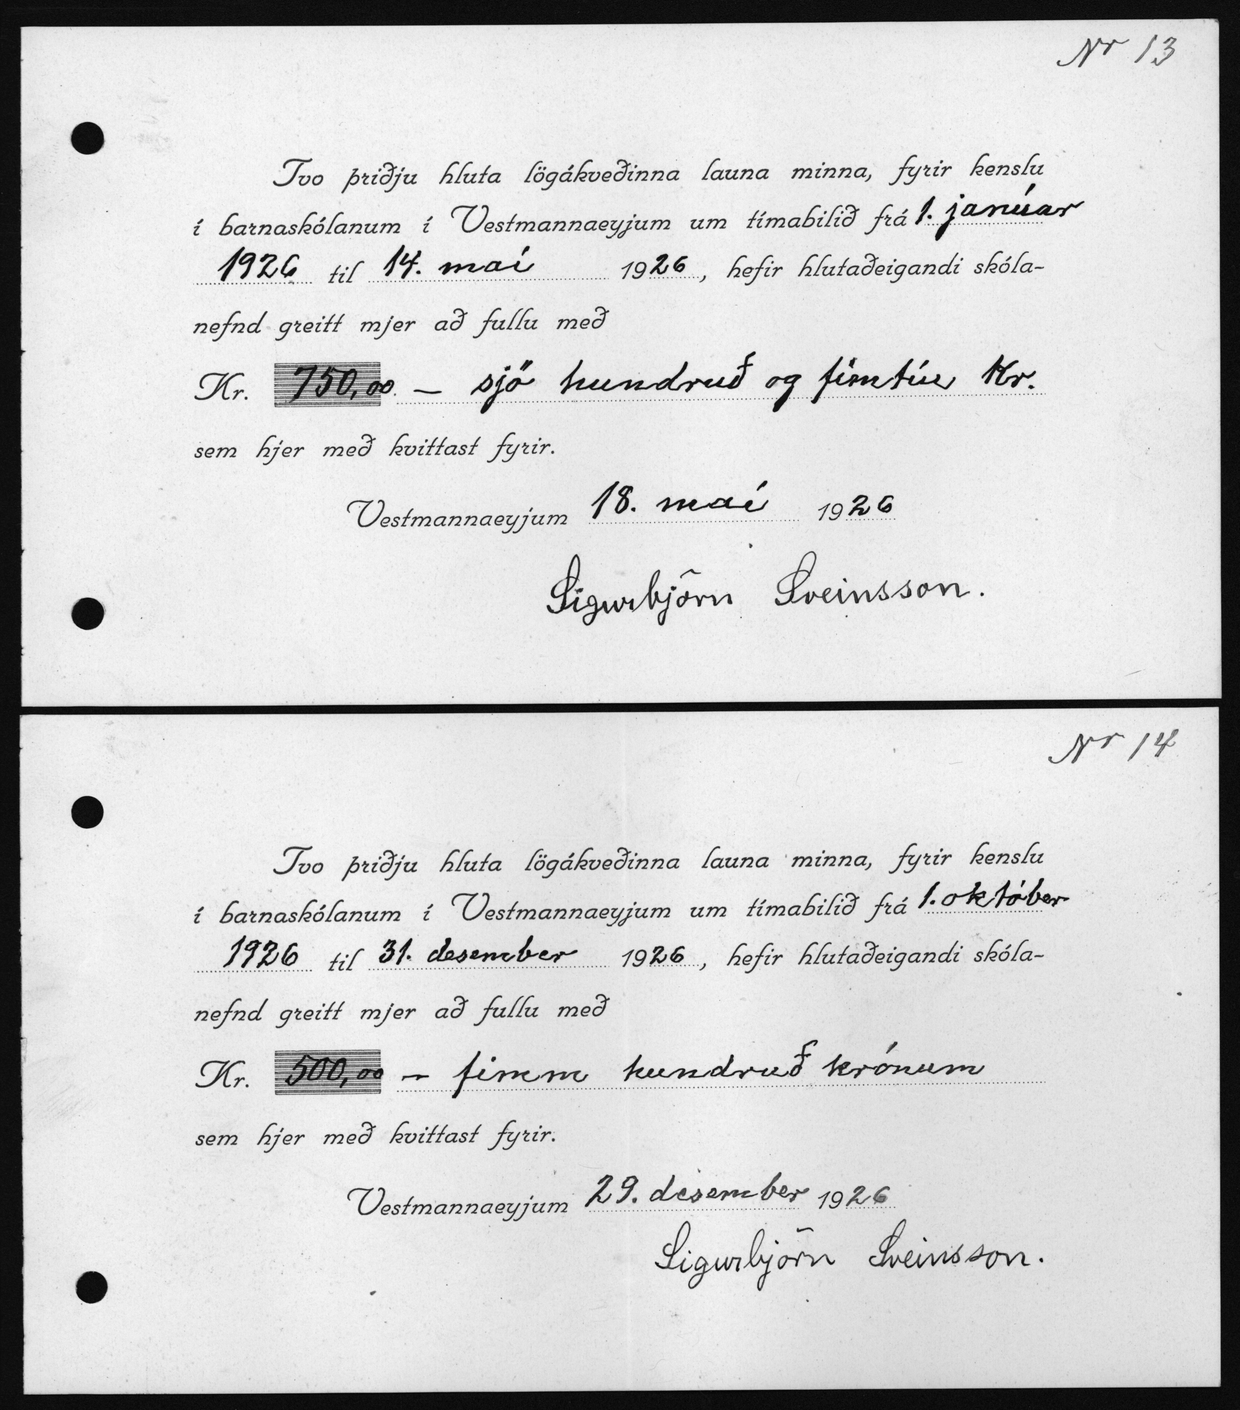 Nr 13
Tvo þriðju hluta lögákveðinna launa minna, fyrir kenslu
í barnaskólanum í Vestmannaeyjum um tímabilið frá 1. janúar
1926 til 14. maí 1926, hefir hlutaðeigandi skóla-
nefnd greitt mjer að fullu með
Kr. 750,00 — sjö hundruð og fimtíu Kr.
sem hjer með kvittast fyrir.
Vestmannaeyjum 18. maí 1926
Sigurbjörn Sveinsson.
Nr 14
Tvo þriðju hluta lögákveðinna launa minna, fyrir kenslu
í barnaskólanum í Vestmannaeyjum um tímabilið frá 1. október
1926 til 31. desember 1926, hefir hlutaðeigandi skóla-
nefnd greitt mjer að fullu með
Kr. 500,00 — fimm hundruð krónum
sem hjer með kvittast fyrir.
Vestmannaeyjum 29. desember 1926
Sigurbjörn Sveinsson.